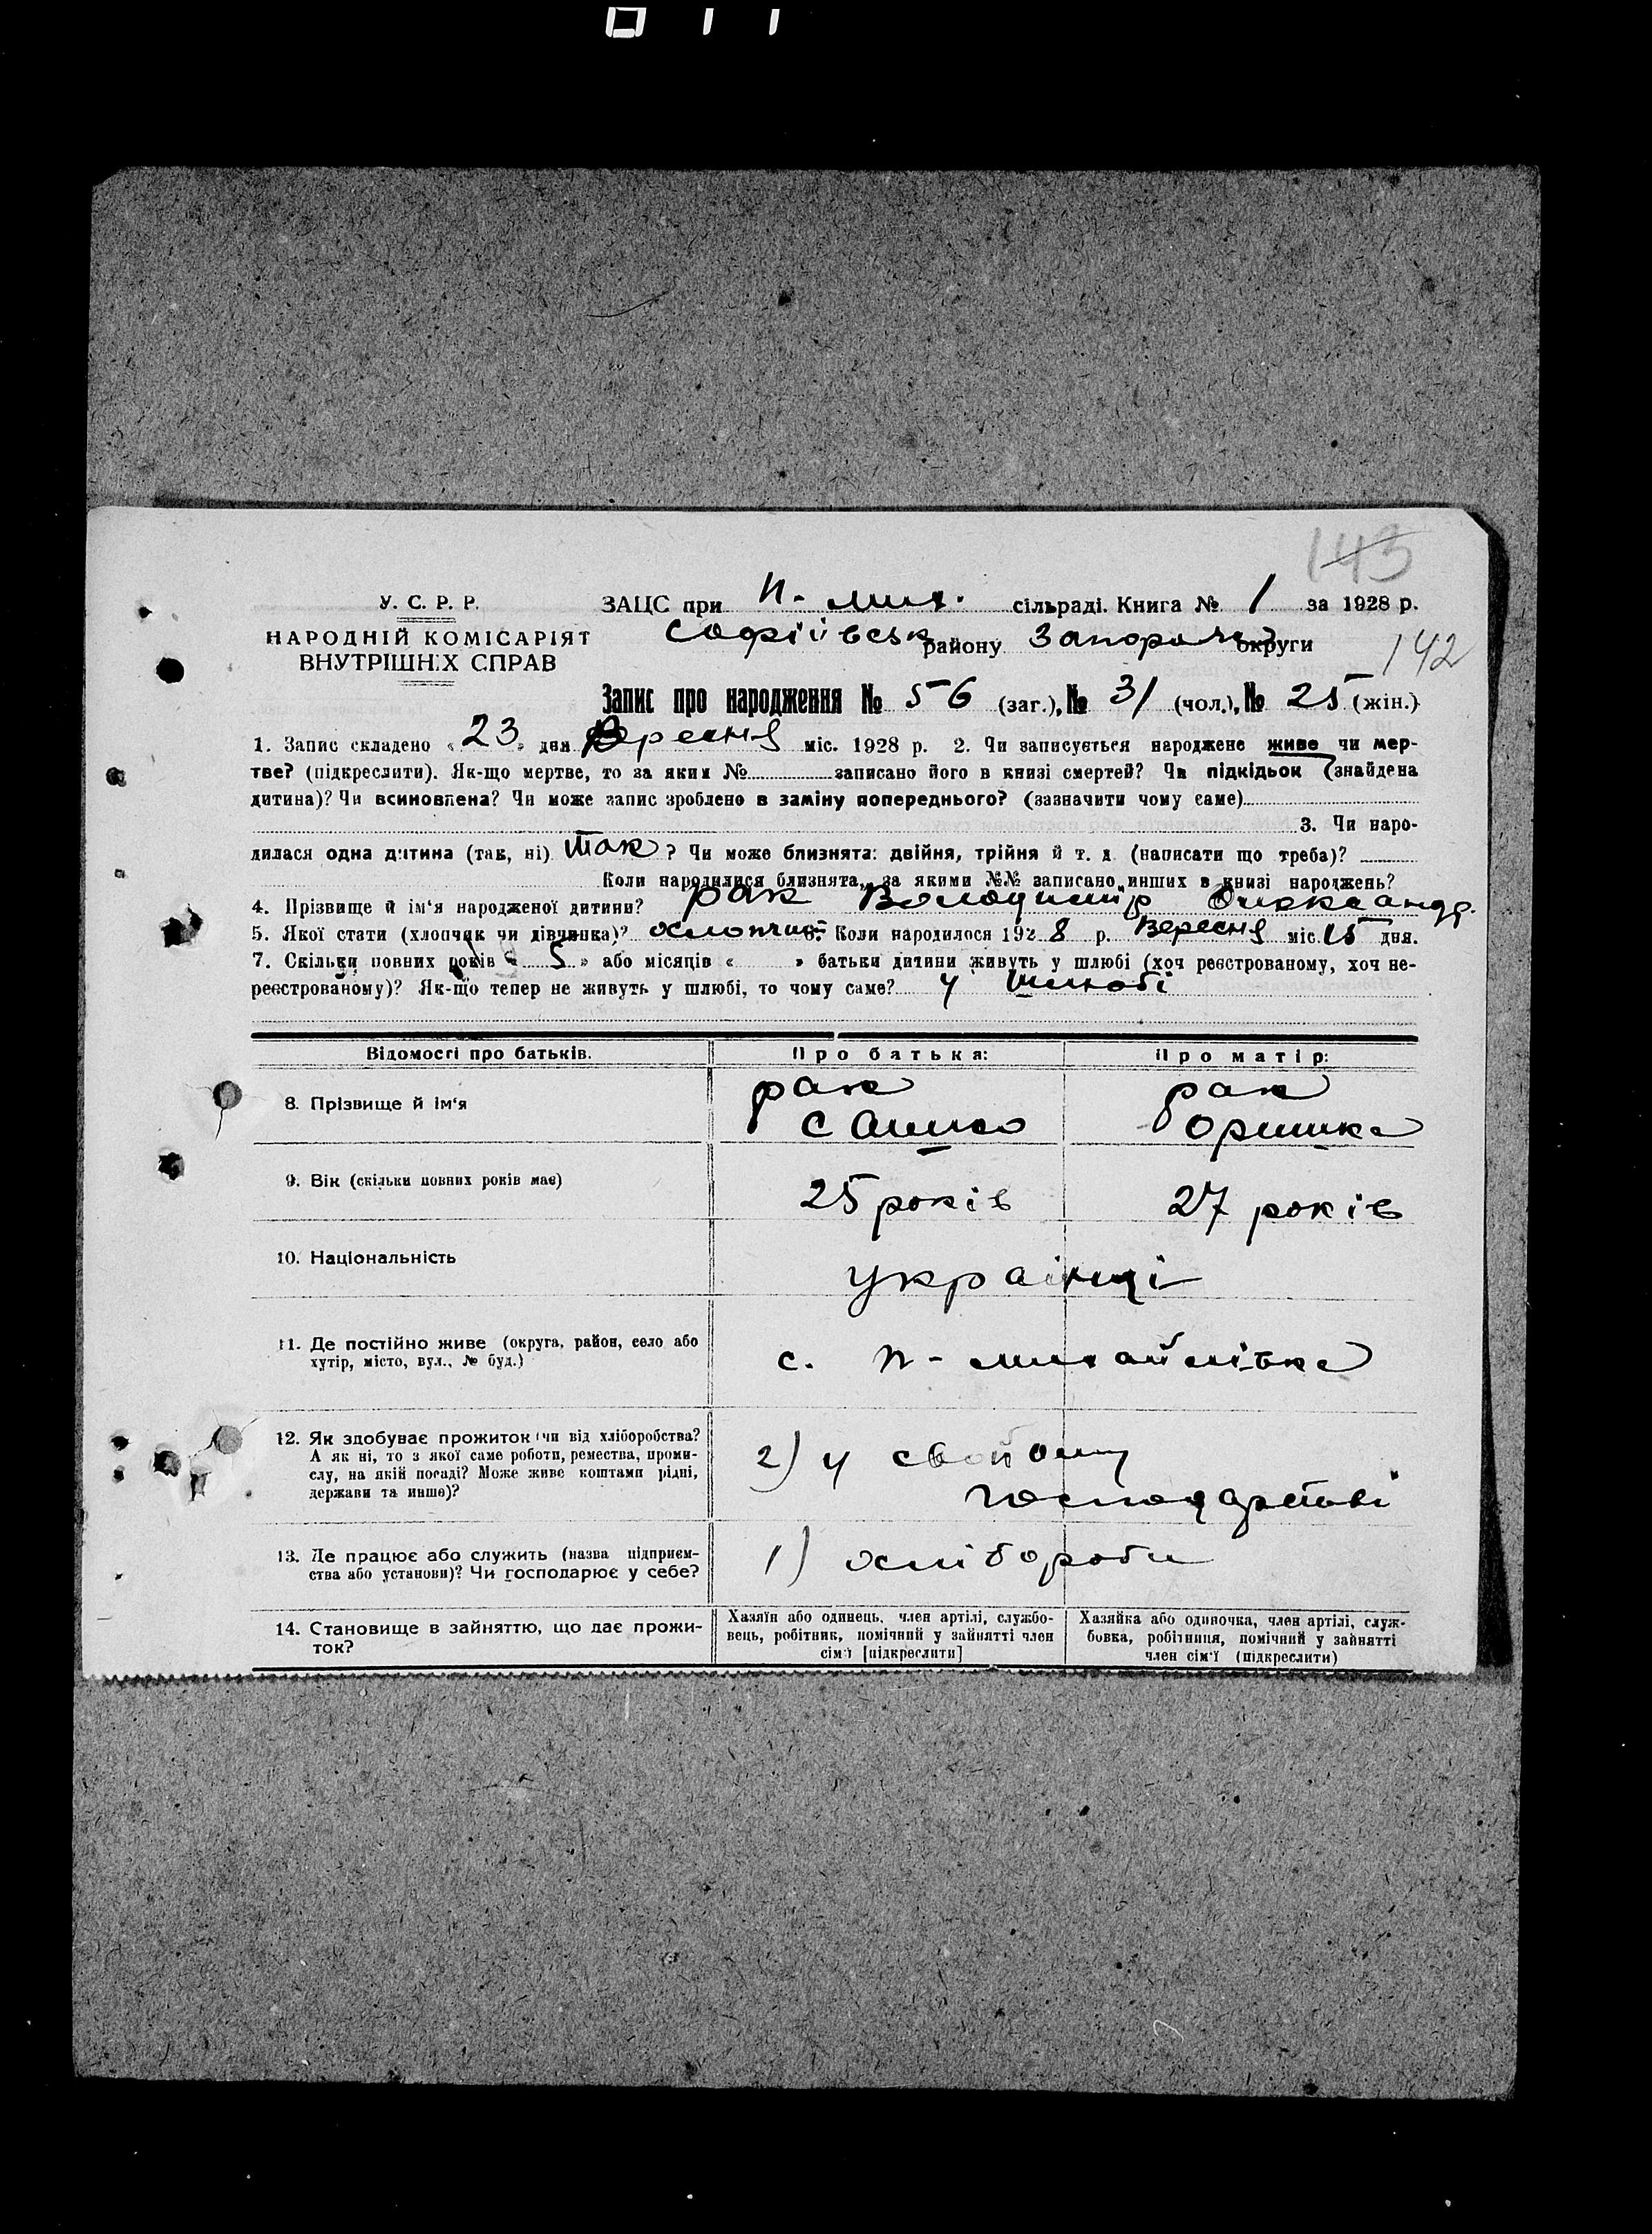 143
У. С. Р. Р.
НАРОДНІЙ КОМІСАРІЯТ
ВНУТРІШНІХ СПРАВ
ЗАЦС при П.-Мих. сільраді. Книга № 1 за 1928 р.
Софіївськ району Запорозьк округи
142
Запис про народження № 56 (заг.), № 31 (чол.), № 25 (жін.)
1. Запис складено « 23 » дня Вересня міс. 1928 р. 2. Чи записується народжене живе чи мер-
тве? (підкреслити). Як-що мертве, то за яким № записано його в книзі смертей? Чи підкідьок (знайдена
дитина)? Чи всиновлена? Чи може запис зроблено в заміну попереднього? (зазначити чому саме)
3. Чи наро-
дилася одна дитина (так, ні) так ? Чи може близнята: двійня, трійня й т. д. (написати що треба)?
Коли народилися близнята, за якими №№ записано инших в книзі народжень?
4. Прізвище й ім'я народженої дитини? рак Володимир Олександр.
5. Якої стати (хлопчик чи дівчинка)? хлопчик 6. Коли народилося 1928 р. Вересня міс. 15 дня.
7. Скільки повних років « 5 » або місяців « » батьки дитини живуть у шлюбі (хоч реєстрованому, хоч не-
реєстрованому)? Як-що тепер не живуть у шлюбі, то чому саме? у шлюбі
Відомості про батьків. Про батька: Про матір:
8. Прізвище й ім'я
рак рак
Сашко Оришка
9. Вік (скільки повних років має) 25 років 27 років
10. Національність українці
11. Де постійно живе (округа, район, село або
хутір, місто, вул., № буд.) с. П-михайлівка
12. Як здобуває прожиток (чи від хліборобства?
А як ні, то з якої саме роботи, ремества, проми-
слу, на якій посаді? Може живе коштами рідні,
держави та инше)?
2) у свойому
господарстві
13. Де працює або служить (назва підприєм-
ства або установи)? Чи господарює у себе?
1) хлібороби
14. Становище в зайняттю, що дає прожи-
ток?
Хазяїн або одинець, член артілі, службо-
вець, робітник, помічний у зайнятті член
сім'ї [підкреслити]
Хазяйка або одиночка, член артілі, служ-
бовка, робітниця, помічний у зайнятті
член сім'ї (підкреслити)